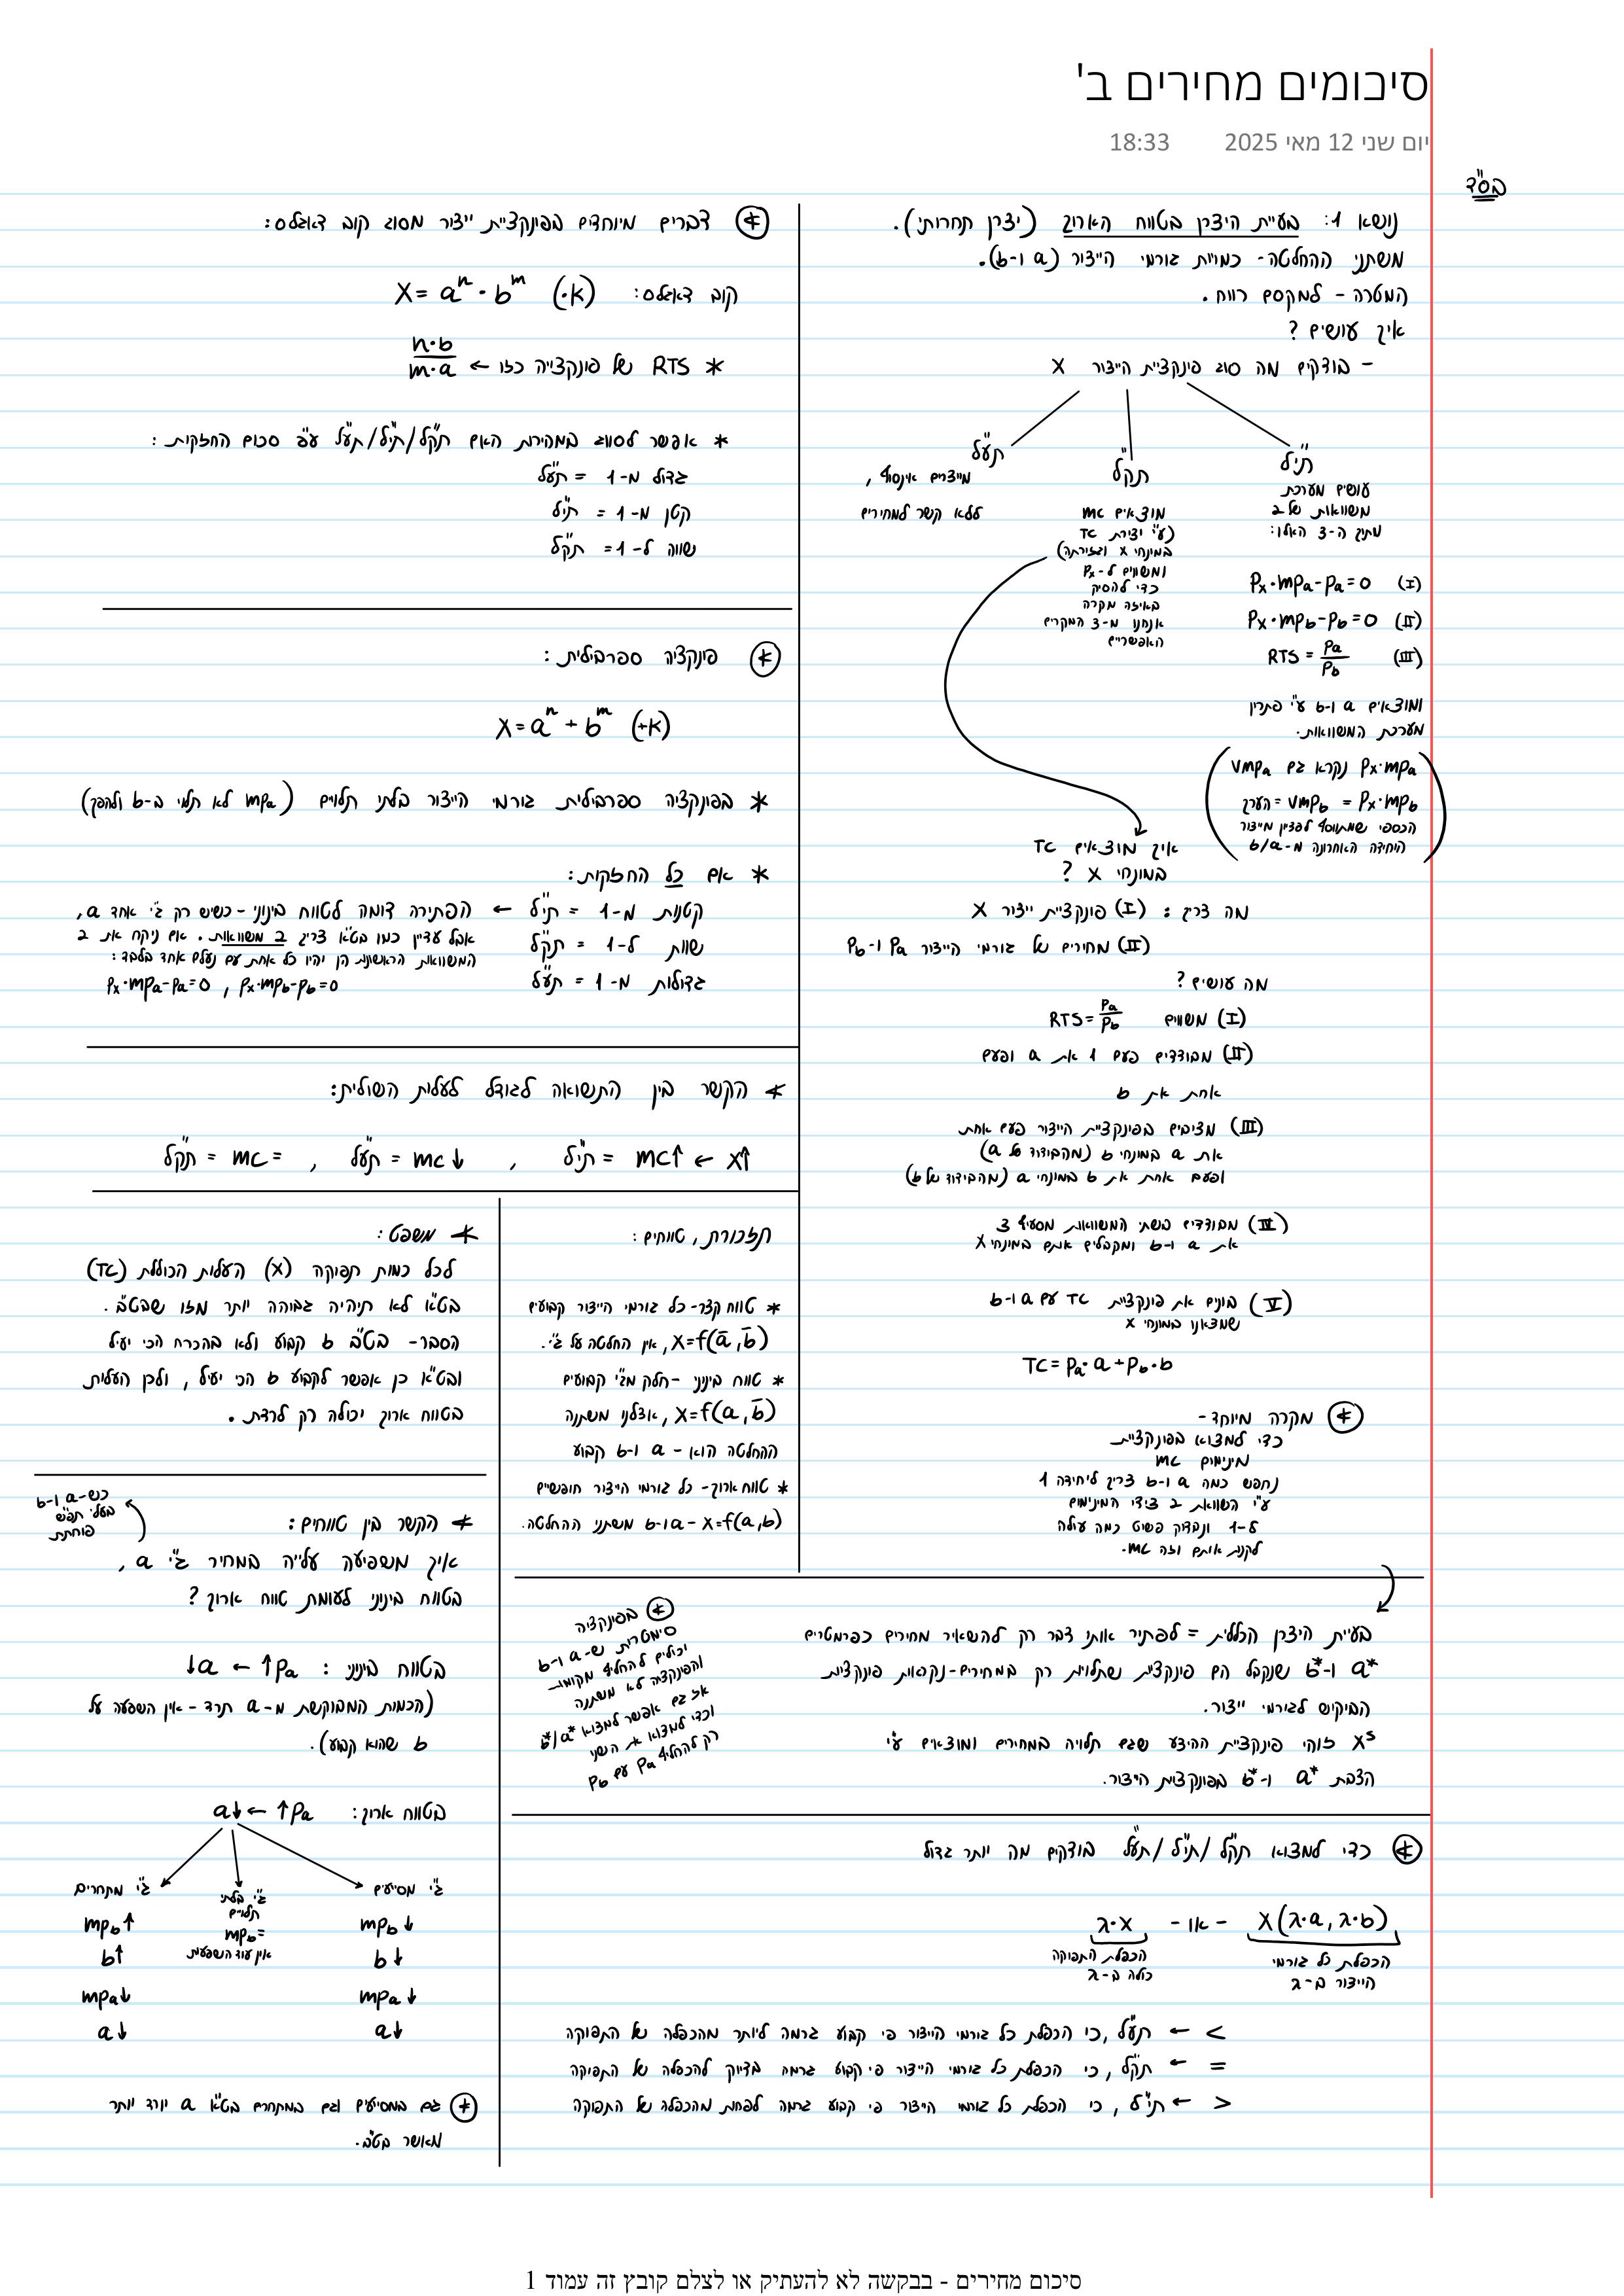 סיכומים מחירים ב'
יום שני 12 מאי 2025 18:33
בס"ד
נושא 1: בעיית היצרן בטווח הארוך (יצרן תחרותי).
משתני ההחלטה - כמויות גורמי הייצור (a ו-b).
המטרה - למקסם רווח.
איך עושים?
- בודקים מה סוג פונקציית הייצור X
תי"ל
עושים מערכת
משוואות של 2
מתוך ה-3 האלו:
(I) Px·mpa-pa=0
(II) Px·mpb-pb=0
(III) RTS = pa/pb
ומוצאים a ו-b ע"י פתרון
מערכת המשוואות.
(Px·mpa נקרא גם Vmpa
Vmpb = Px·mpb = הערך
הכספי שמתווסף לפדיון מייצור
היחידה האחרונה מ-b/a)
תק"ל
מוצאים mc
(ע"י יצירת TC
במונחי X וגזירתה)
ומשווים ל-Px
כדי להסיק
באיזה מקרה
אנחנו מ-3 המקרים
האפשריים
תע"ל
מייצרים אינסוף,
ללא קשר למחירים
איך מוצאים TC
במונחי X?
מה צריך: (I) פונקציית ייצור X
(II) מחירים של גורמי הייצור Pa ו-Pb
מה עושים?
(I) משווים RTS=Pa/Pb
(II) מבודדים פעם 1 את a ופעם
אחת את b
(III) מציבים בפונקציית הייצור פעם אחת
את a במונחי b (מהבידוד של a)
ופעם אחת את b במונחי a (מהבידוד של b)
(IV) מבודדים משתי המשוואות מסעיף 3
את a ו-b ומקבלים אותם במונחי X
(V) בונים את פונקציית TC עם a ו-b
שמצאנו במונחי X
TC = Pa·a+Pb·b
* מקרה מיוחד-
כדי למצוא בפונקציית
מינימום mc
נחפש כמה a ו-b צריך ליחידה 1
ע"י השוואת 2 צידי המינימום
ל-1 ונבדוק פשוט כמה עולה
לקנות אותם וזה mc.
* דברים מיוחדים בפונקציית ייצור מסוג קוב דאגלס:
קוב דאגלס: X= a^n · b^m (·k)
* RTS של פונקצייה כזו ← n·b/m·a
* אפשר לסווג במהירות האם תק"ל/תי"ל/תע"ל ע"פ סכום החזקות:
גדול מ-1 = תע"ל
קטן מ-1 = תי"ל
שווה ל-1 = תק"ל
* פונקציה ספרבילית:
X=a^n + b^m (+k)
* בפונקציה ספרבילית גורמי הייצור בלתי תלויים (mpa לא תלוי ב-b ולהפך)
* אם כל החזקות:
קטנות מ-1 = תי"ל ← הפתירה דומה לטווח בינוני - כשיש רק ג"י אחד a,
אבל עדיין כמו בטא צריך 2 משוואות. אם ניקח את 2
המשוואות הראשונות הן יהיו כל אחת עם נעלם אחד בלבד:
Px·mpa-pa=0 , px·mpb-pb=0
שוות ל-1 = תק"ל
גדולות מ-1 = תע"ל
* הקשר בין התשואה לגודל לעלות השולית:
X↑ → mc↑ = תי"ל , mc↓ = תע"ל , mc= = תק"ל
תזכורת, טווחים:
* טווח קצר- כל גורמי הייצור קבועים
X=f(a̅,b̅), אין החלטה על ג"י.
* טווח בינוני - חלק מג"י קבועים
X=f(a,b̅), אצלנו משתנה
ההחלטה הוא - a ו-b קבוע
* טווח ארוך- כל גורמי הייצור חופשיים
X=f(a,b) - a ו-b משתני ההחלטה.
* משפט:
לכל כמות תפוקה (X) העלות הכוללת (TC)
בט"א לא תיהיה גבוהה יותר מזו שבט"ב.
הסבר- בט"ב b קבוע ולא בהכרח הכי יעיל
ובט"א כן אפשר לקבוע b הכי יעיל, ולכן העלות
בטווח ארוך יכולה רק לרדת.
* הקשר בין טווחים:
כש-a ו-b
בעלי תפ"ש
פוחתת
איך משפיעה עלייה במחיר ג"י a,
בטווח בינוני לעומת טווח ארוך?
בטווח בינוני: Pa↑ → a↓
(הכמות המבוקשת מ-a תרד - אין השפעה על
b שהוא קבוע).
בטווח ארוך: Pa↑ → a↓
ג"י מסייעים
mpb↓
b↓
mpa↓
a↓
ג"י בלתי
תלויים
mpb=
אין עוד השפעות
ג"י מתחרים
mpb↑
b↑
mpa↓
a↓
* גם במסייעים וגם במתחרים בט"א a יורד יותר
מאשר בט"ב.
בעיית היצרן הכללית = לפתור אותו דבר רק להשאיר מחירים כפרמטרים
a* ו-b* שנקבל הם פונקציות שתלויות רק במחירים - נקראות פונקציות
הביקוש לגורמי ייצור.
X^s זוהי פונקציית ההיצע שגם תלויה במחירים ומוצאים ע"י
הצבת a* ו-b* בפונקציית הייצור.
* בפונקציה
סימטרית ש-a ו-b
יכולים להחליף מקומות
והפונקציה לא משתנה
אז גם אפשר למצוא a*/b*
וכדי למצוא את השני
רק להחליף Pa עם Pb
* כדי למצוא תק"ל/תי"ל/תע"ל בודקים מה יותר גדול
X(λ·a, λ·b) - או - λ·X
הכפלת כל גורמי
הייצור ב-λ
הכפלת התפוקה
כולה ב-λ
> ← תע"ל, כי הכפלת כל גורמי הייצור פי קבוע גרמה ליותר מהכפלה של התפוקה
= ← תק"ל, כי הכפלת כל גורמי הייצור פי קבוע גרמה בדיוק להכפלה של התפוקה
< ← תי"ל, כי הכפלת כל גורמי הייצור פי קבוע גרמה לפחות מהכפלה של התפוקה
סיכום מחירים - בבקשה לא להעתיק או לצלם קובץ זה עמוד 1